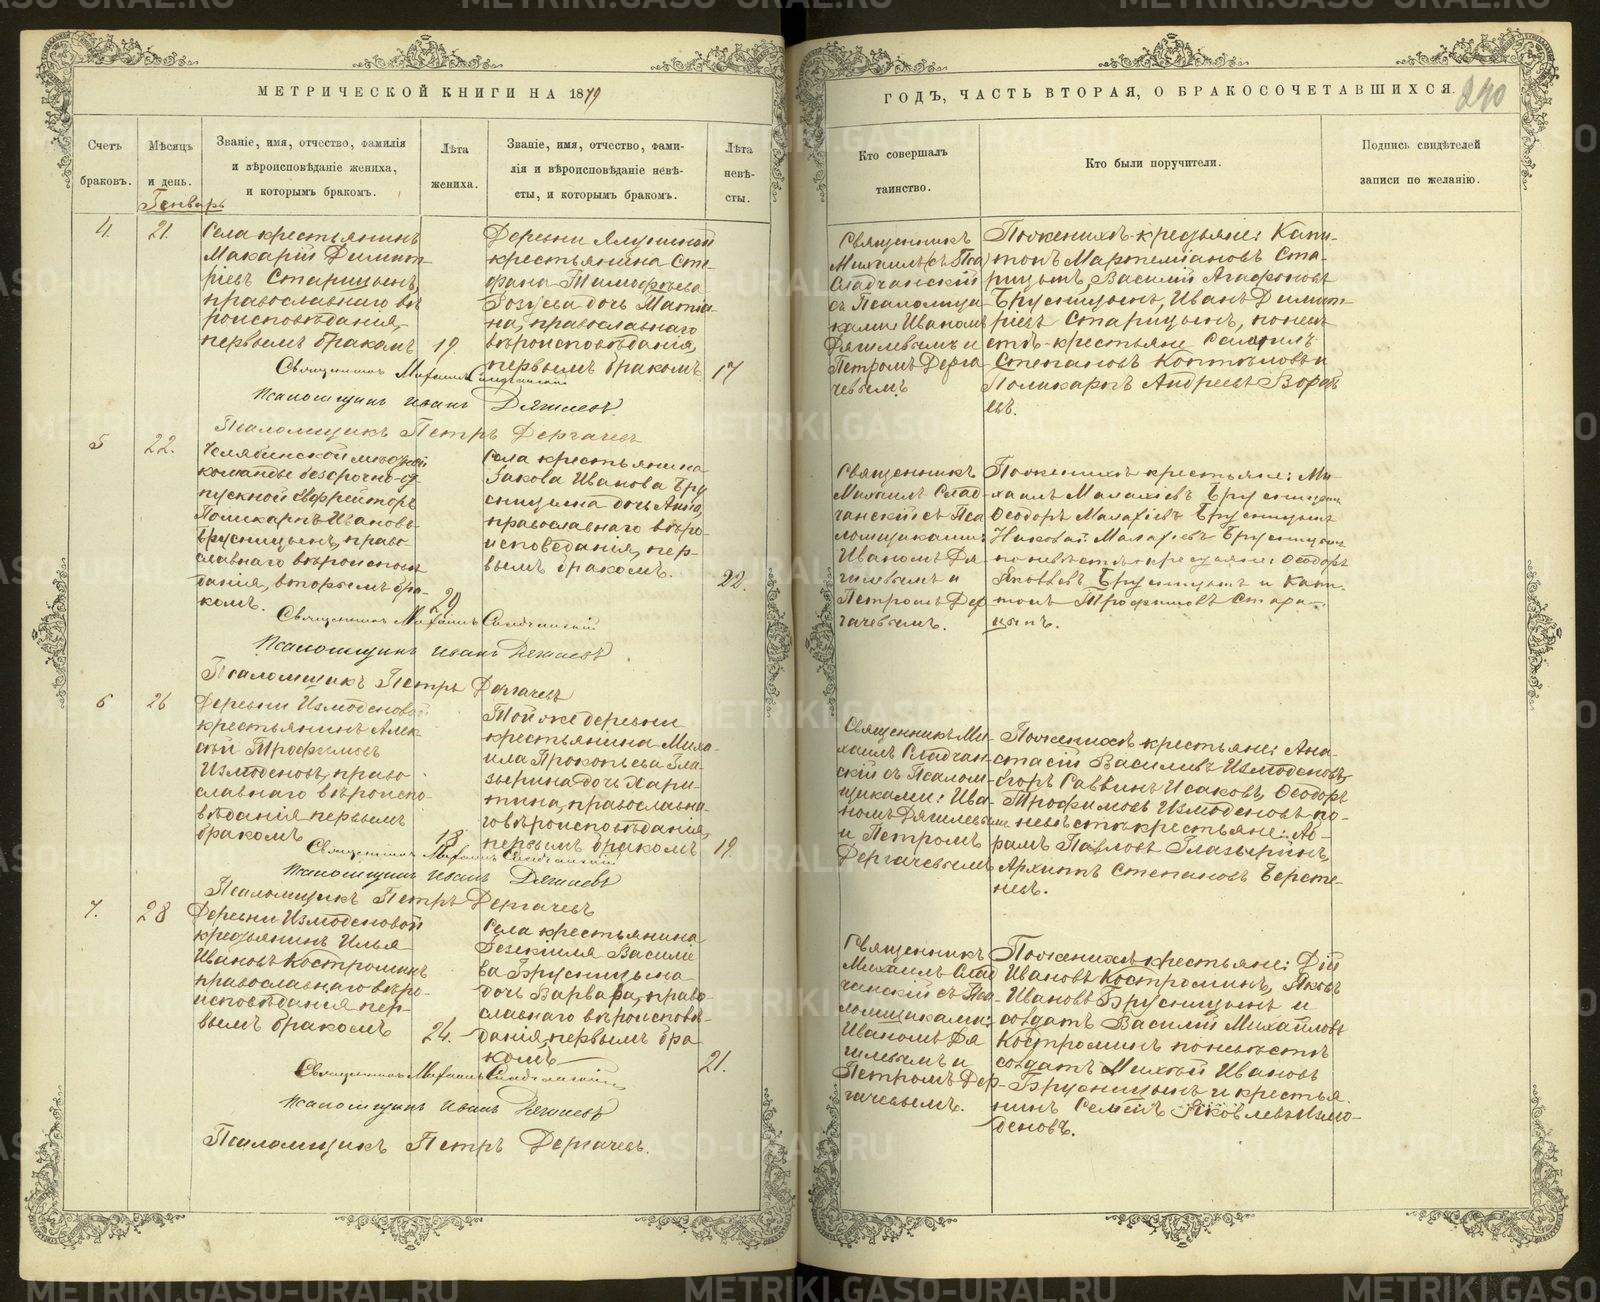 МЕТРИЧЕСКОЙ КНИГИ НА 1879
Счетъ браковъ.
Мѣсяцъ и день.
Званіе, имя, отчество, фамилія и вѣроисповѣданіе жениха, и которымъ бракомъ.
Лѣта жениха.
Званіе, имя, отчество, фамилія и вѣроисповѣданіе невѣсты, и которымъ бракомъ.
Лѣта невѣсты.
Генварь
4.
21.
Села крестьянинъ
Макарій Димит-
ріевъ Старицынъ,
православнаго вѣ
роисповѣданія,
первымъ бракомъ
19.
Деревни
крестьянина Сте-
фана Тимофѣева
дочь Матре-
на, православнаго
вѣроисповѣданія,
первымъ бракомъ
17
Священникъ Михаилъ Сладчанскій
Псаломщикъ Иванъ Дягилевъ
Псаломщикъ Петръ Дергачевъ
5
22.
Челябинской мѣстной
команды безсрочно-от
пускной Ефрейторъ
Поликарпъ Ивановъ
Брусницынъ, право
славнаго вѣроисповѣ
данія, вторымъ бра-
комъ.
29
Села крестьянина
Іакова Иванова Бру
сницына дочь Анна,
православнаго вѣро-
исповѣданія, пер-
вымъ бракомъ.
22.
Священникъ Михаилъ Сладчанскій
Псаломщикъ Иванъ Дягилевъ
Псаломщикъ Петръ Дергачевъ
6
26
Деревни Измоденовой
крестьянинъ Алек
сѣй Трофимовъ
Измоденовъ, право
славнаго вѣроиспо-
вѣданія первымъ
бракомъ
18
Той же деревни
крестьянина Миха-
ила Прокопьева Гла-
зырина дочь Хари-
тина, православна-
го вѣроисповѣданія,
первымъ бракомъ
19.
Священникъ Михаилъ Сладчанскій
Псаломщикъ Иванъ Дягилевъ
Псаломщикъ Петръ Дергачевъ
7.
28
Деревни Измоденовой
крестьянинъ Илья
Ивановъ Костроминъ
православнаго вѣро-
исповѣданія пер-
вымъ бракомъ
24.
Села крестьянина
Іезекіиля Василіе
ва Брусницына
дочь Варвара, право-
славнаго вѣроисповѣ-
данія, первымъ бра-
комъ
21.
Священникъ Михаилъ Сладчанскій
Псаломщикъ Иванъ Дягилевъ
Псаломщикъ Петръ Дергачевъ.
ГОДЪ, ЧАСТЬ ВТОРАЯ, О БРАКОСОЧЕТАВШИХСЯ.
240
Кто совершалъ таинство.
Кто были поручители.
Подпись свидѣтелей записи по желанію.
Священникъ
Михаилъ
Сладчанскій
съ Псаломщи
ками: Иваномъ
Дягилевымъ и
Петромъ Дерга
чевымъ.
По женихѣ крестьяне: Капи-
тонъ Мартемьяновъ Ста-
рицынъ, Василій Агафоновъ
Брусницынъ, Иванъ Димит-
ріевъ Старицынъ, по невѣ
стѣ-крестьяне
Степановъ и
Поликарпъ Андреевъ
Священникъ
Михаилъ Слад-
чанскій съ Пса
ломщиками:
Иваномъ Дя
гилевымъ и
Петромъ Дер
гачевымъ.
По женихѣ крестьяне: Ми-
хаилъ Малахіевъ Брусницынъ
Ѳеодоръ Малахіевъ Брусницынъ
Николай Малахіевъ Брусницынъ
по невѣстѣ-крестьяне: Ѳеодоръ
Яковлевъ Брусницынъ и Капи-
тонъ Трофимовъ Стари-
цынъ.
Священникъ Ми-
хаилъ Сладчан-
скій съ Псалом-
щиками: Ива-
номъ Дягилевымъ
и Петромъ
Дергачевымъ
По женихѣ крестьяне: Ана-
стасій Василіевъ Измоденовъ,
Егоръ Саввинъ Исаковъ, Ѳеодоръ
Трофимовъ Измоденовъ по-
невѣстѣ крестьяне: Ав-
рамъ Павловъ Глазыринъ,
Архипъ Степановъ Берсте-
невъ.
Священникъ
Михаилъ Слад
чанскій съ Пса-
ломщиками:
Иваномъ Дя
гилевымъ и
Петромъ Дер-
гачевымъ.
По женихѣ крестьяне: Дій
Ивановъ Костроминъ, Яковъ
Ивановъ Брусницынъ и
солдатъ Василій Михайловъ
Костроминъ по невѣстѣ
солдатъ Ивановъ
Брусницынъ и крестья
нинъ Яковлевъ Измо-
деновъ.
METRIKI.GASO-URAL.RU